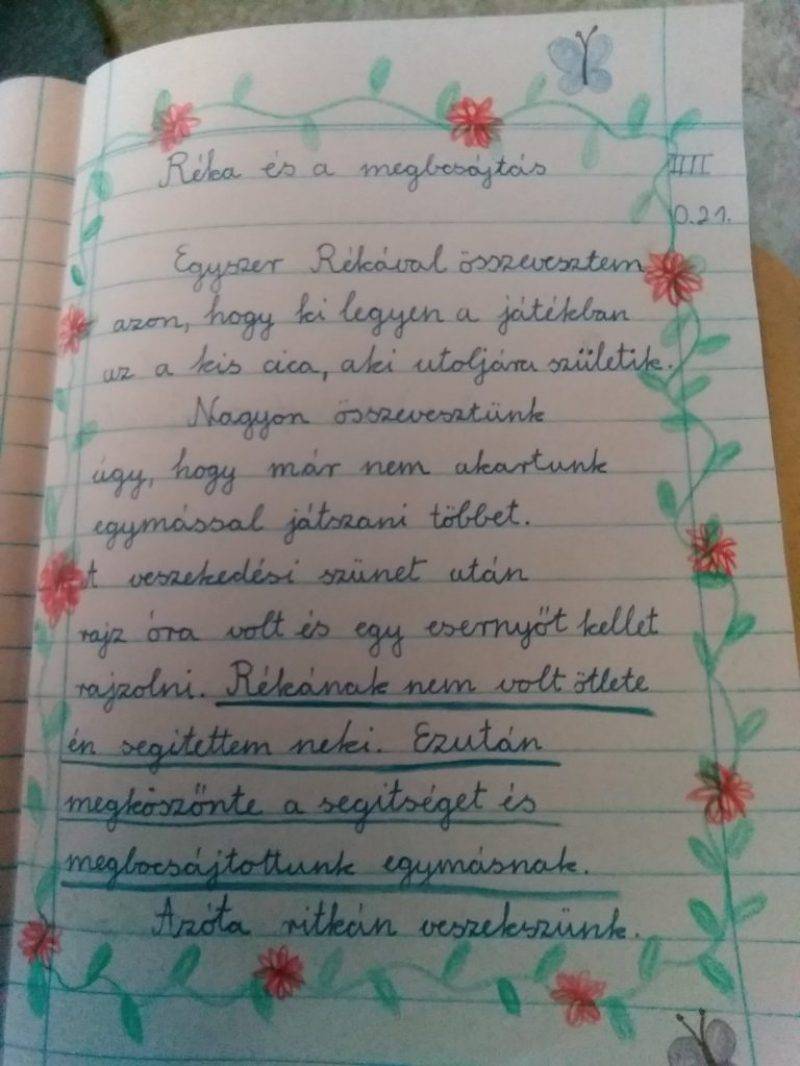 Réka és a megbcsájtás
IIII
0.21.
Egyszer Rékával összevesztem
azon, hogy ki legyen a játékban
az a kis cica, aki utoljára születik.
Nagyon összevesztünk
úgy, hogy már nem akartunk
egymással játszani többet.
t veszekedési szünet után
rajz óra volt és egy esernyőt kellet
rajzolni. Rékának nem volt ötlete
én segitettem neki. Ezután
megköszönte a segitséget és
megbocsájtottunk egymásnak.
Azóta ritkán veszekszünk.